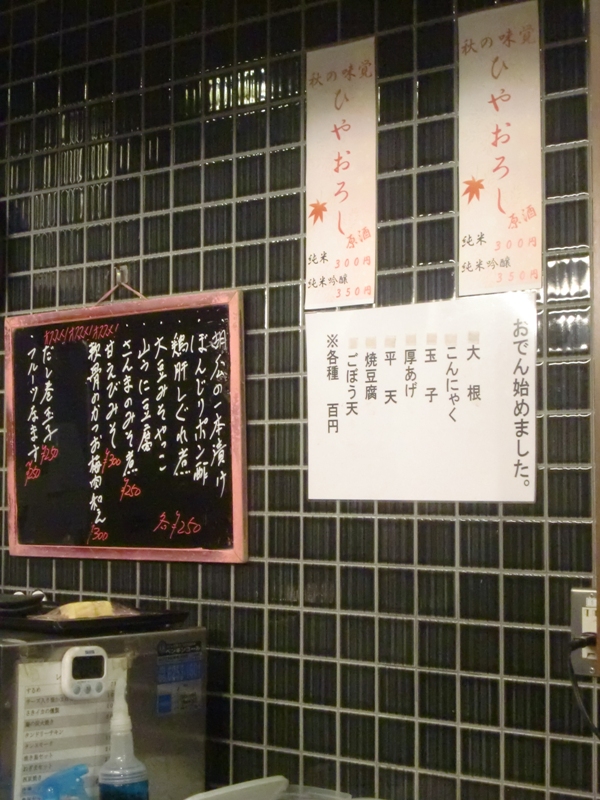 秋の味覚
ひやおろし
原酒
純米 300円
純米吟醸 350円
秋の味覚
ひやおろし
原酒
純米 300円
純米吟醸 350円
おでん始めました。
大 根
こんにゃく
玉 子
厚あげ
平 天
焼豆腐
ごぼう天
※各種 百円
胡瓜の一本漬け
ぼんじりポン酢
鶏肝しぐれ煮
大豆みそやっこ
山うに豆腐
各¥250
さんまのみそ煮 ¥250
甘えびみそ ¥300
オススメ!オススメ!オススメ!
軟骨のかつお梅肉和え ¥300
だし巻玉子 ¥250
フルーツなます ¥250